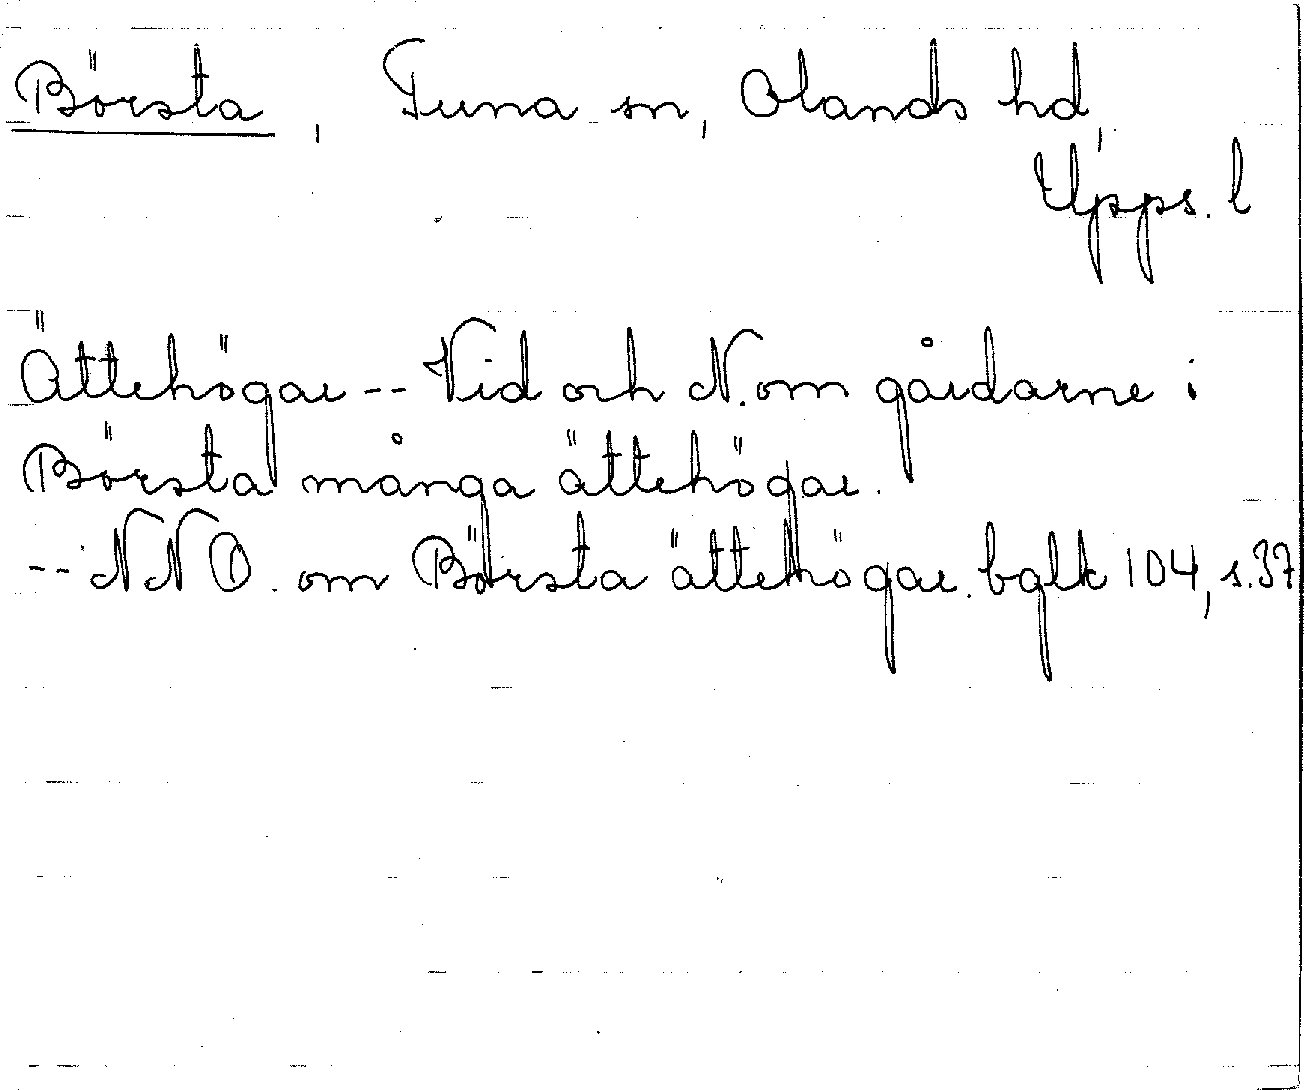 Börsta, Tuna sn, Olands hd,
Upps. l
Ättehögar -- Vid och N. om gårdarne i
Börsta många ättehögar.
-- NNO. om Börsta ättehögar. bglk 104, s.37